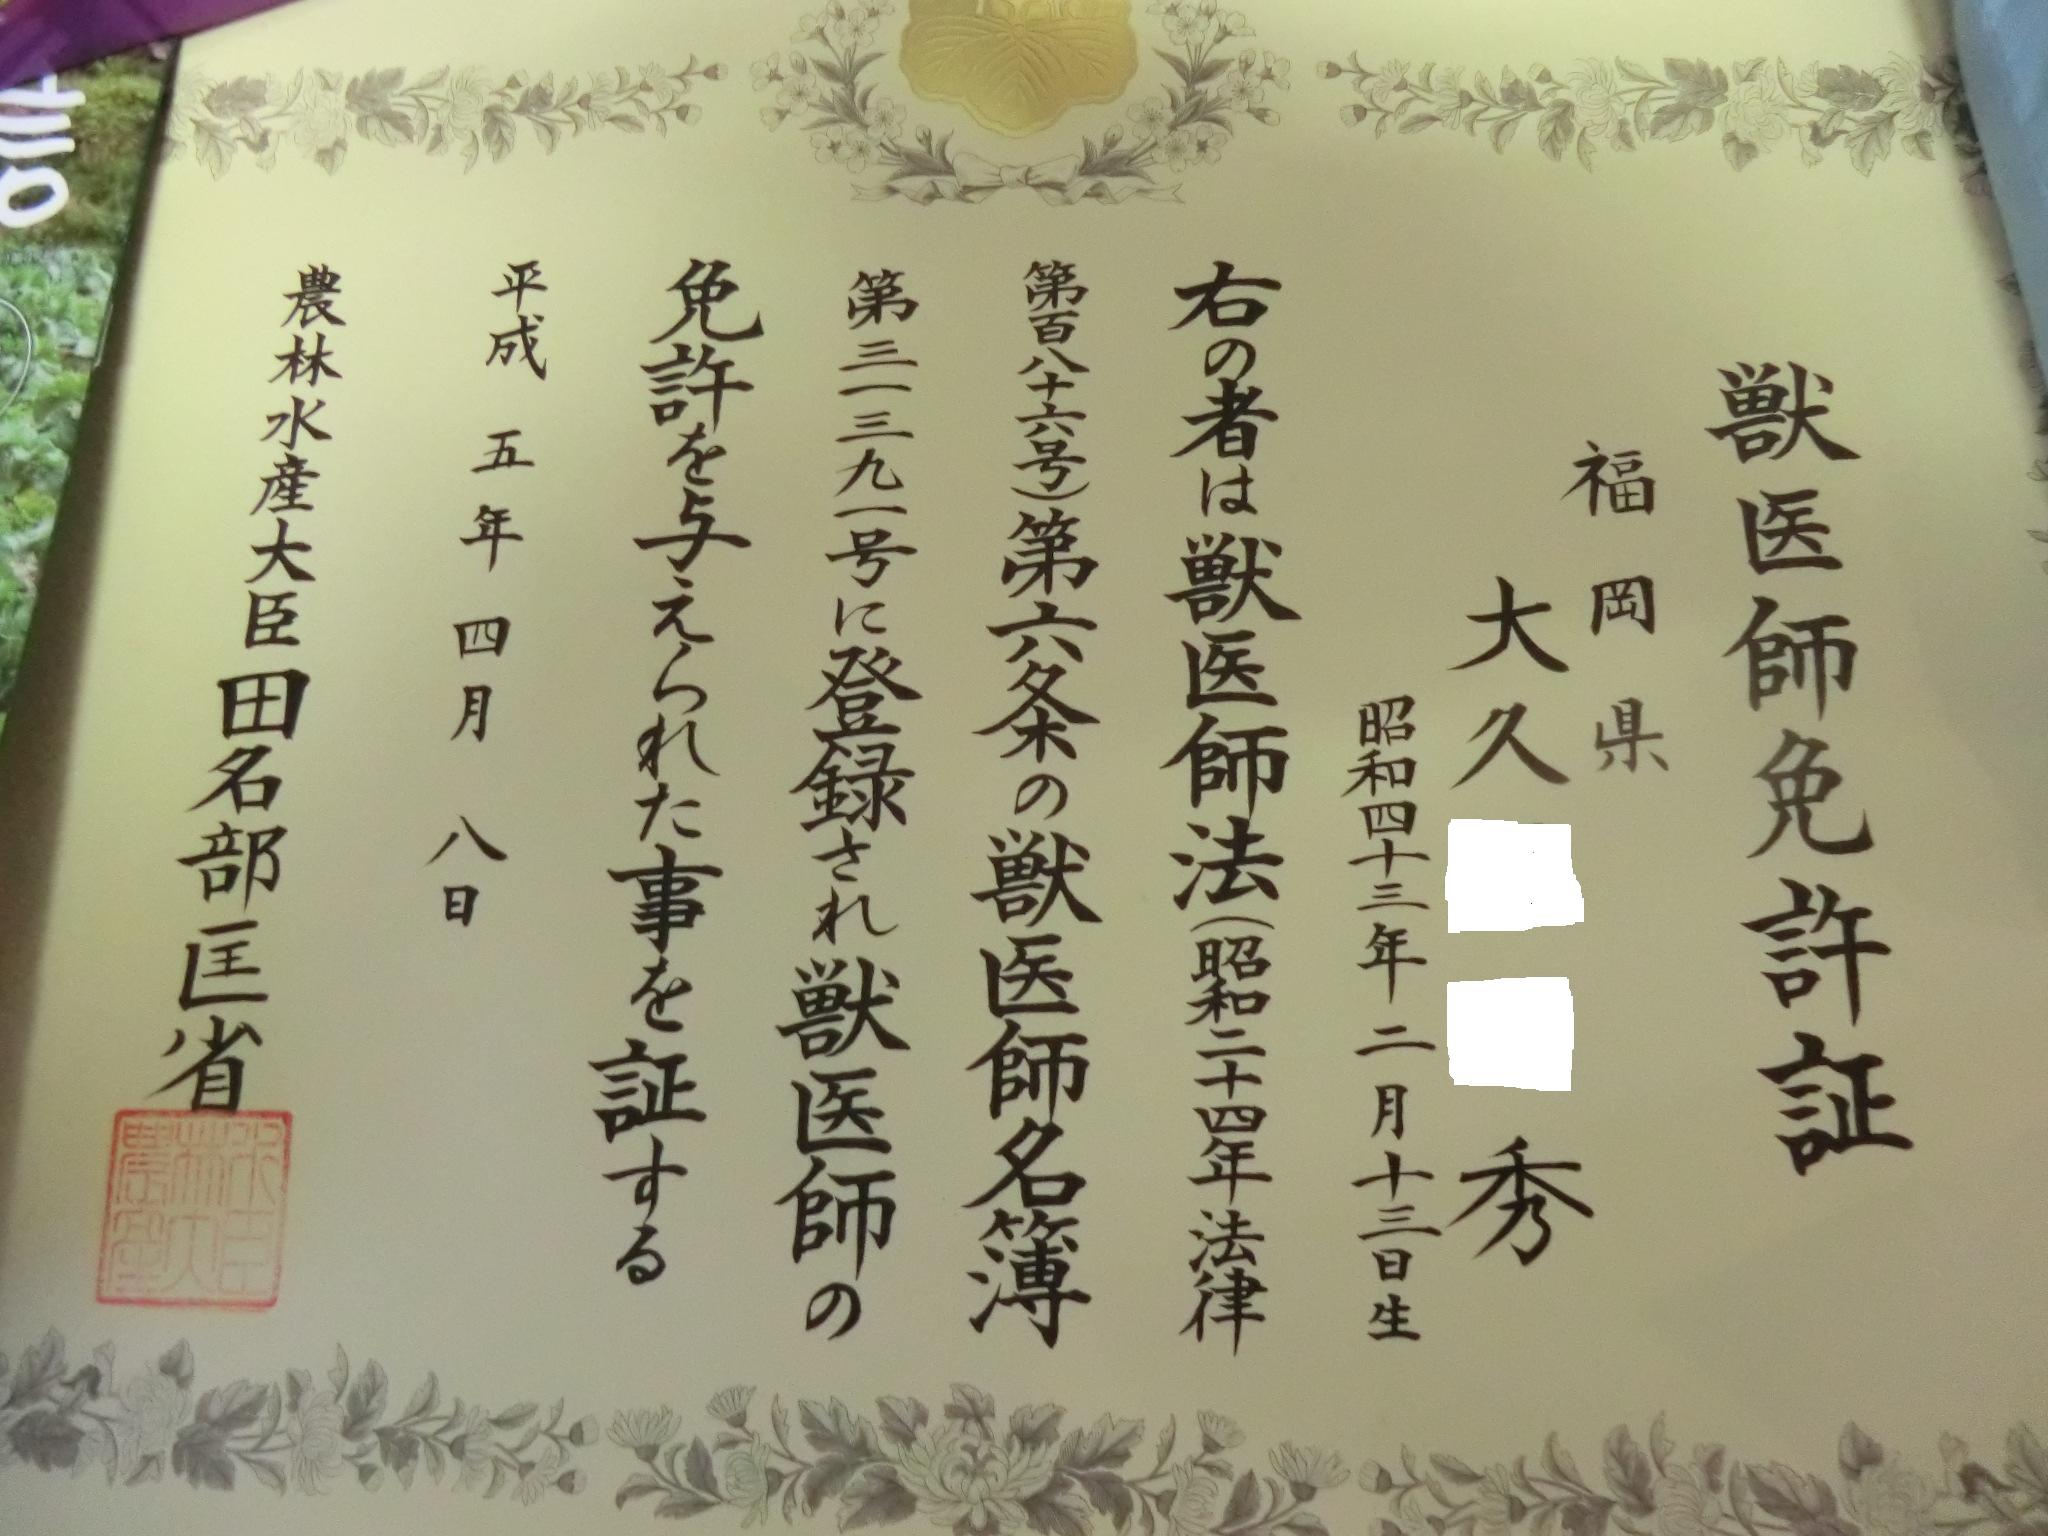 獣医師免許証
福岡県
大久 秀
昭和四十三年二月十三日生
右の者は獣医師法(昭和二十四年法律
第百八十六号)第六条の獣医師名簿
第三一三九一号に登録され獣医師の
免許を与えられた事を証する
平成五年四月八日
農林水産大臣田名部匡省